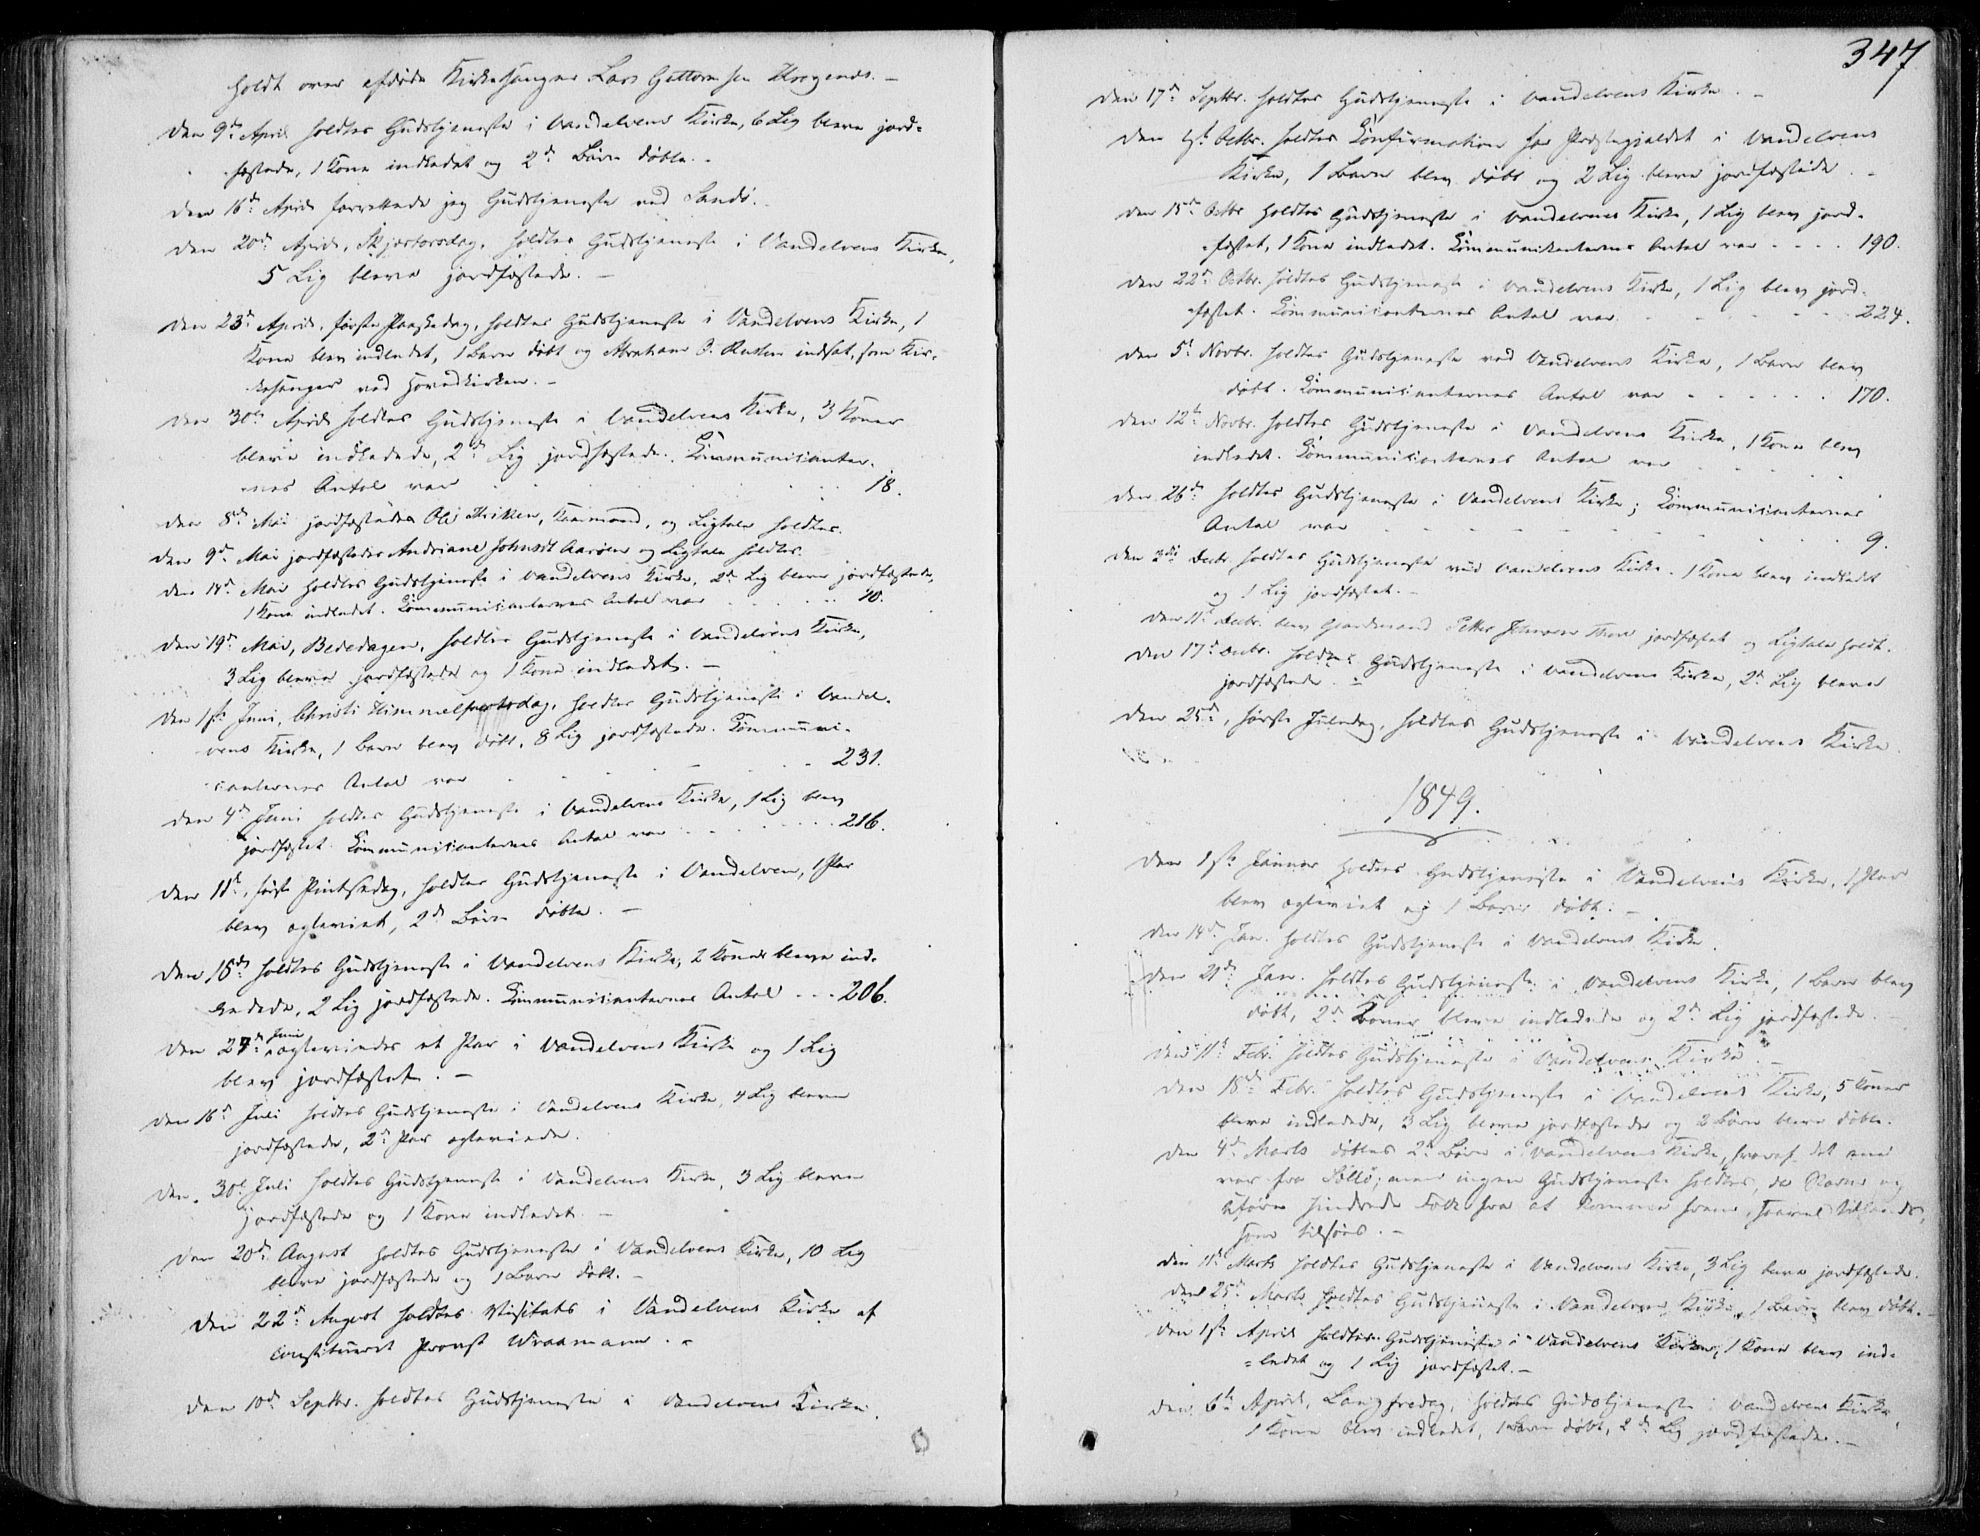 holdt over afdøde Kirkesanger Lars Guttormsen
Den 9de April holdtes Gudstjeneste i Vandelvens Kirke, 6 Lig bleve jord-
fæstede, 1 Kone indledet og 2de Børn døbte.
Den 16de April forrettede jeg Gudstjeneste ved Sandø.
Den 20de April, Skjærtorsdag, holdtes Gudstjeneste i Vandelvens Kirke,
5 Lig bleve jordfæstede. –
Den 23de April, første Paaskedag, holdtes Gudstjeneste i Vandelvens Kirke, 1
Kone blev indledet, 1 Barn døbt og Abraham O. indsat som Kir-
kesanger ved Hovedkirken. –
Den 30te April holdtes Gudstjeneste i Vandelvens Kirke, 3 Koner
bleve indledede, 2de Lig jordfæstede. Communicanter-
nes Antal var 18.
Den 8de Mai jordfæstedes Ole og Ligtale holdtes.
Den 9de Mai jordfæstedes Andriane Johnsdt Aarøen og Ligtale holdtes.
Den 14de Mai holdtes Gudstjeneste i Vandelvens Kirke, 2de Lig bleve jordfæstede,
1 Kone indledet. Communicanternes Antal var 10.
Den 19de Mai, Bededagen, holdtes Gudstjeneste i Vandelvens Kirke,
3 Lig bleve jordfæstede og 1 Kone indledet. –
Den 1ste Juni, Christi Himmelfartsdag, holdtes Gudstjeneste i Vandel-
vens Kirke, 1 Barn blev døbt, 8 Lig jordfæstede. Communi-
canternes Antal var 231.
Den 4de Juni holdtes Gudstjeneste i Vandelvens Kirke, 1 Lig blev
jordfæstet. Communicanternes Antal var 216.
Den 11te, første Pintsedag, holdtes Gudstjeneste i Vandelven, 1 Par
blev ægteviet, 2de Børn døbte. –
Den 18de holdtes Gudstjeneste i Vandelvens Kirke, 2 Koner bleve ind-
ledede, 2 Lig jordfæstede. Communicanternes Antal 206.
Den 24de Juni ægteviedes et Par i Vandelvens Kirke og 1 Lig
blev jordfæstet. –
Den 16de Juli holdtes Gudstjeneste i Vandelvens Kirke, 4 Lig bleve
jordfæstede, 2de Par ægteviede.
Den 30te Juli holdtes Gudstjeneste i Vandelvens Kirke, 3 Lig bleve
jordfæstede og 1 Kone indledet. –
Den 20de August holdtes Gudstjeneste i Vandelvens Kirke, 10 Lig
bleve jordfæstede og 1 Barn døbt. –
Den 22de August holdtes Visitats i Vandelvens Kirke af
constitueret Provst Wraamann. –
Den 10de Septbr. holdtes Gudstjeneste i Vandelvens Kirke.
347
Den 17de Septbr. holdtes Gudstjeneste i Vandelvens Kirke. –
Den 1ste Octbr. holdtes Confirmation for Præstegjeldet i Vandelvens
Kirke, 1 Barn blev døbt og 2 Lig bleve jordfæstede. –
Den 15de Octbr holdtes Gudstjeneste i Vandelvens Kirke, 1 Lig blev jord-
fæstet, 1 Kone indledet. Communikanternes Antal var 190.
Den 22de Octbr. holdtes Gudstjeneste i Vandelvens Kirke, 1 Lig blev jord-
fæstet. Communicanternes Antal var 224.
Den 5te Novbr. holdtes Gudstjeneste ved Vandelvens Kirke, 1 Barn blev
døbt. Communicanternes Antal var 170.
Den 12te Novbr. holdtes Gudstjeneste i Vandelvens Kirke, 1 Kone blev
indledet. Communicanternes Antal var
Den 26de holdtes Gudstjeneste i Vandelvens Kirke; Communicanternes
Antal var 9.
Den 3die Decbr. holdtes Gudstjeneste ved Vandelvens Kirke. 1 Kone blev indledet
og 1 Lig jordfæstet. –
Den 11te Decbr. blev Gaardmand Petter jordfæstet og Ligtale holdt.
Den 17de Decbr. holdtes Gudstjeneste i Vandelvens Kirke, 2de Lig bleve
jordfæstede. –
Den 25de, første Juledag, holdtes Gudstjeneste i Vandelvens Kirke.
1849.
Den 1ste Januar holdtes Gudstjeneste i Vandelvens Kirke, 1 Par
blev ægteviet og 1 Barn døbt. –
Den 14de Jan. holdtes Gudstjeneste i Vandelvens Kirke.
Den 21de Jan. holdtes Gudstjeneste i Vandelvens Kirke, 1 Barn blev
døbt, 2de Koner bleve indledede og 2de Lig jordfæstede. –
Den 11te Febr. holdtes Gudstjeneste i Vandelvens Kirke. –
Den 18de Febr. holdtes Gudstjeneste i Vandelvens Kirke, 5 Koner
bleve indledede, 3 Lig bleve jordfæstede og 2 Børn bleve døbte.
Den 4de Marts døbtes 2de Børn i Vandelvens Kirke, hvoraf det ene
var fra men ingen Gudstjeneste holdtes, da og
hindrede Folk fra at komme frem,
som
Den 11te Marts holdtes Gudstjeneste i Vandelvens Kirke, 3 Lig bleve jordfæstede.
Den 25de Marts holdtes Gudstjeneste i Vandelvens Kirke, 1 Barn blev døbt. –
Den 1ste April holdtes Gudstjeneste i Vandelvens Kirke, 1 Kone blev ind-
ledet og 1 Lig jordfæstet. –
Den 6te April, Langfredag, holdtes Gudstjeneste i Vandelvens Kirke,
1 Kone blev indledet, 1 Barn døbt, 2de Lig jordfæstede. –